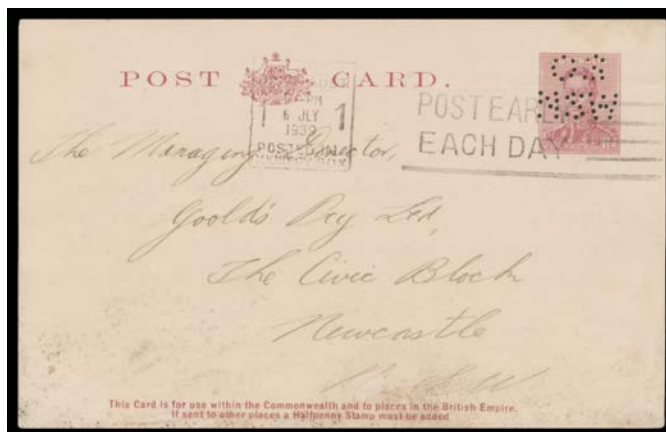 POST CARD.
OS
NSW
PM
1 6 JLY 1
1939
POSTED IN
POST EARLY
EACH DAY
The Managing Director,
Goold's Pty Ltd,
The Civic Block
Newcastle
N.S.W
This Card is for use within the Commonwealth and to places in the British Empire.
If sent to other places a Halfpenny Stamp must be added